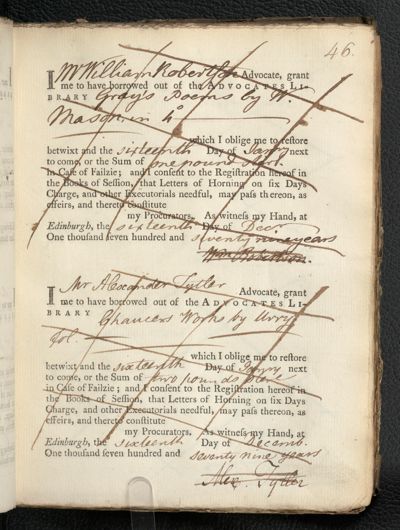 46.
I Mr William Robertson Advocate, grant
me to have borrowed out of the ADVOCATES LI-
BRARY Grays Poems by W.
Mason in 4o
which I oblige me to restore
betwixt and the sixteenth Day of Janry next
to come, or the Sum of one pound Sterl.
In Case of Failzie; and I consent to the Registration hereof in
the Books of Session, that Letters of Horning on six Days
Charge, and other Executorials needful, may pass thereon, as
effeirs, and thereto constitute
my Procurators. As witness my Hand, at
Edinburgh, the sixteenth Day of Decr.
One thousand seven hundred and seventy nine years
Wm Robertson.
I Mr Alexander Tytler Advocate, grant
me to have borrowed out of the ADVOCATES LI-
BRARY Chaucers Works by Urry
fol.
which I oblige me to restore
betwixt and the sixteenth Day of Janry next
to come, or the Sum of two pounds
in Case of Failzie; and I consent to the Registration hereof in
the Books of Session, that Letters of Horning on six Days
Charge, and other Executorials needful, may pass thereon, as
effeirs, and thereto constitute
my Procurators. As witness my Hand, at
Edinburgh, the sixteenth Day of Decemb.
One thousand seven hundred and seventy nine years
Alex. Tytler